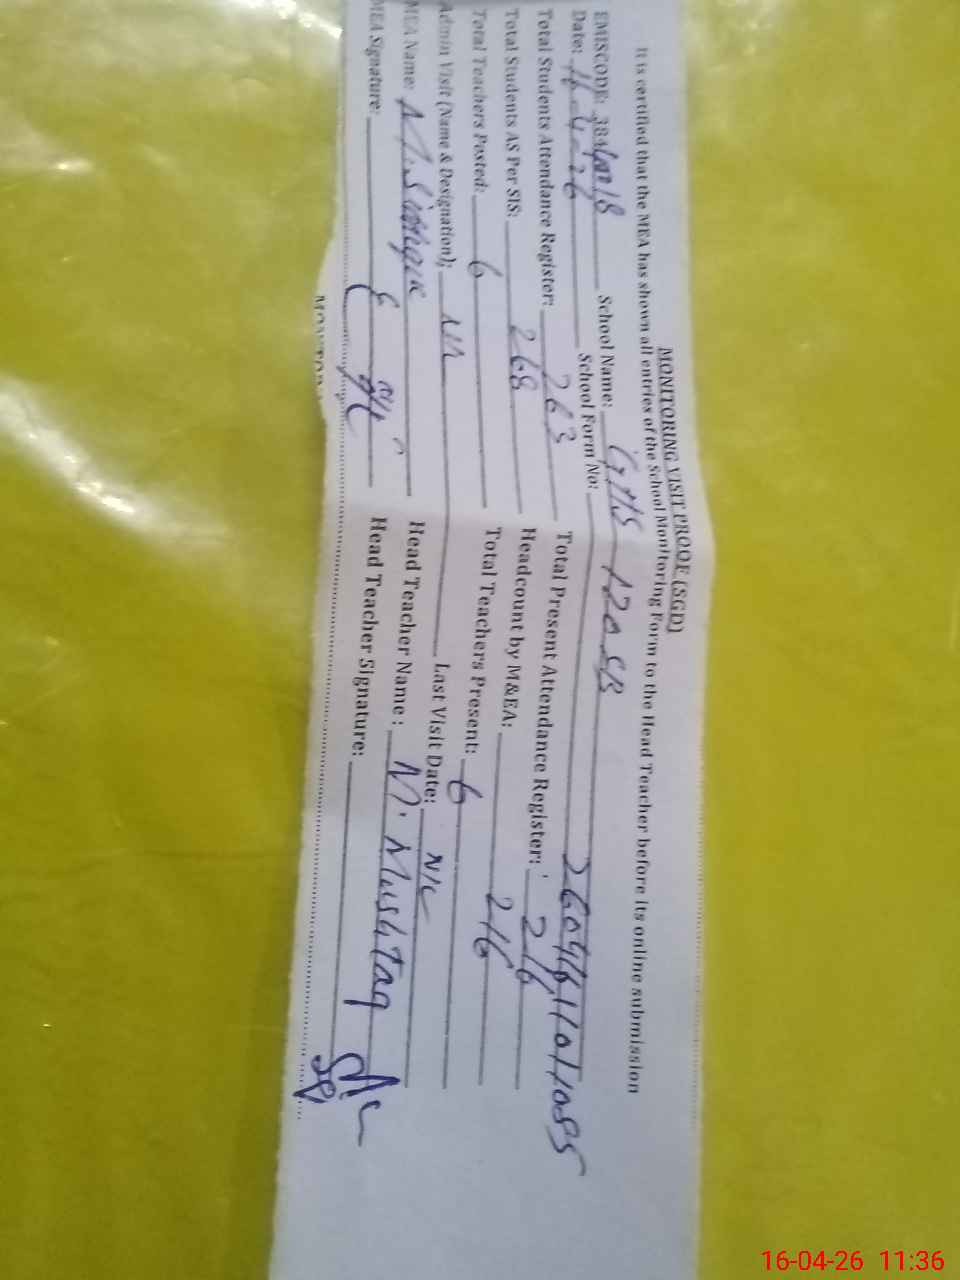 MONITORING VISIT PROOF (SGD)
It is certified that the MEA has shown all entries of the School Monitoring Form to the Head Teacher before its online submission
EMISCODE: 384 School Name: GHS 120 SB
Date: 16-4-26 School Form No: 26041611011085
Total Students Attendance Register: 263 Total Present Attendance Register: 216
Total Students AS Per SIS: 268 Headcount by M&EA: 216
Total Teachers Posted: 6 Total Teachers Present: 6
Admin Visit (Name & Designation); Nil Last Visit Date: Nil
MEA Name: Head Teacher Name: M. Mushtaq
MEA Signature: Head Teacher Signature:
16-04-26 11:36